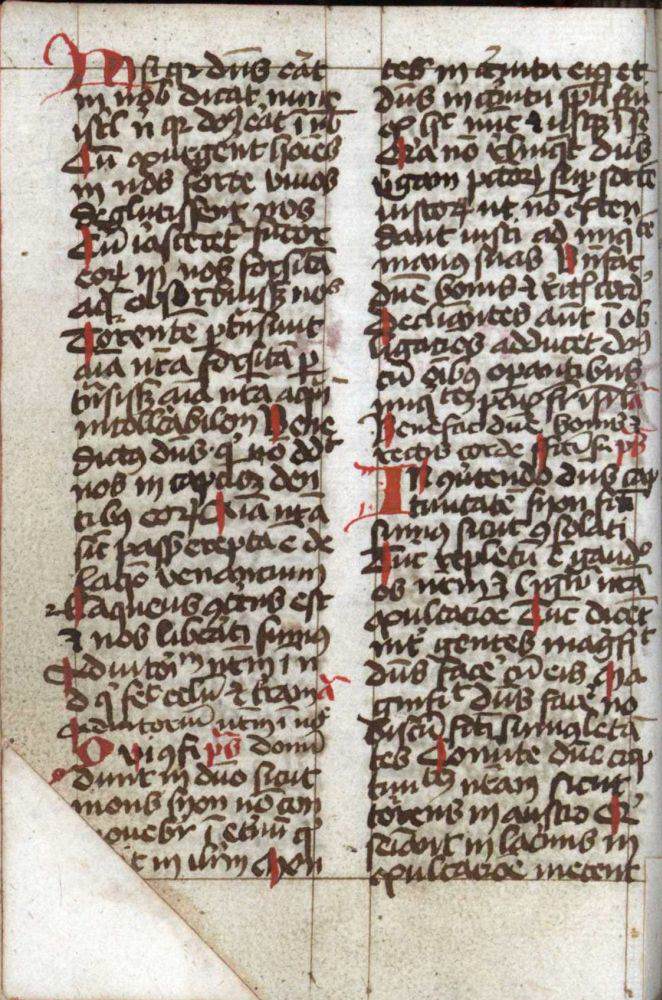 Nisi qr dns erat
in nob dicat nunc
isrl n qr dns erat i nob
Cu exurgerent hoies
in nos forte vivos
deglutissent nos
Cu irascetet furor
eor in nos forsita
aq obsorbuisset nos
Torente ptsivit
aia nra forsita p
tnsisset aia nra aqm
intollerabilem Bene
dictus dns q no dedit
nos in captoem den
tibus eor Aia nra
sic passer erepta e de
laqo venancium
laqueus gtritus est
et nos liberati sumus
Adiutorium nrm i n
d q fecit celu et terram a
adiutoriu nrm i no
Qui gfi ps domi
dunt in dno sicut
mons syon no com
movebr i etnu q
t in ilrm Mon
tes in circuitu eius et
dns in circuitu ppli sui
ex hc nuc et usq i s
Qra no relinqt dns
virgam pctor sup sorte
iustor ut no exten
dant iusti ad iniqte
manus suas Benfac
dne bonis et rectis cord
Declinantes aut i ob
ligatoes adducet dns
cu oibus operantibus
iniqtem pax sr isrl a
Benefac dne bonis et
rectis corde
In gvertendo dns cap
tivitate syon fti
sumus sicut gsolati
Tuc repletu e gaudo
os nrm et ligua nra
exultacioe Tuc dicet
int gentes magfit
dns face cu eis Ma
gnfit dns face no
biscu fti sumus leta
tes Convte dne cap
tivitatem nram sicut
torens in austro Q
seiavit in lacmis in
exultacioe metent